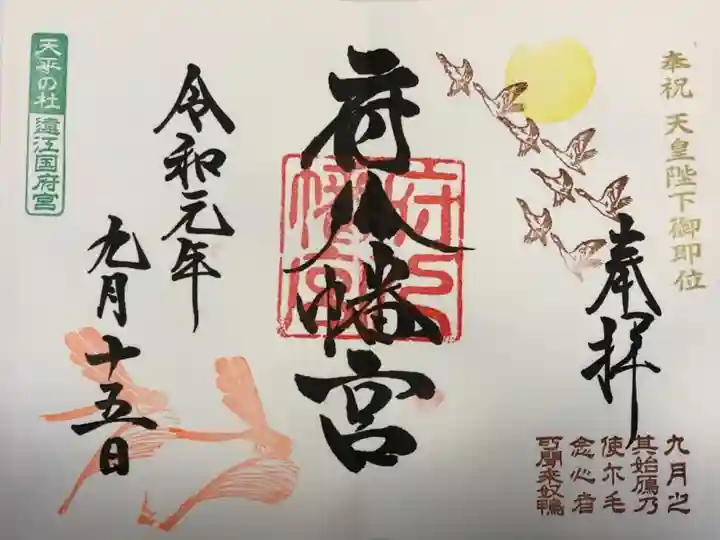 奉祝 天皇陛下御即位
奉拝
九月之
其始鴈乃
使尓毛
念心者
可聞来奴鴨
府八幡宮
府八
幡宮
令和元年
九月十五日
天平の杜
遠江国府宮